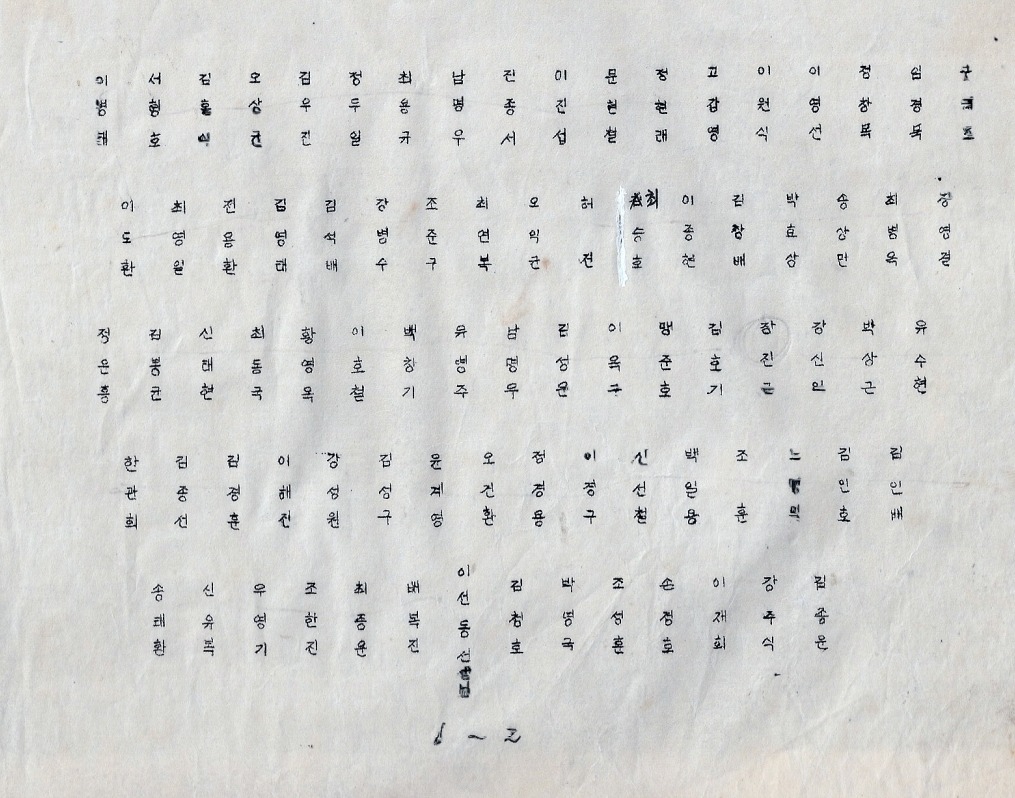 이병태
서형호
오상균
김우진
정두일
최용규
남명우
진종서
이진섭
문현철
정현래
고갑영
이원식
이영선
이도환
최영일
진용환
김영태
김석배
강병수
조준구
최연복
오익균
허진
최승호
이종현
김창배
박효상
송상만
최범옥
장영걸
정운흥
김봉균
신태현
최동국
황영옥
이호철
백창기
유영주
김성운
이옥구
맹준호
김호기
장진근
강신인
박상근
유수현
한관희
김종선
김경훈
이해진
강성원
김성구
윤계영
오진환
정경용
이정구
신선철
백일용
조훈
김인호
김인배
송태환
신유복
우영기
조한진
최종윤
배복진
이선동선생님
김청호
박명국
조성훈
손경호
이재희
강주식
김종운
6~2